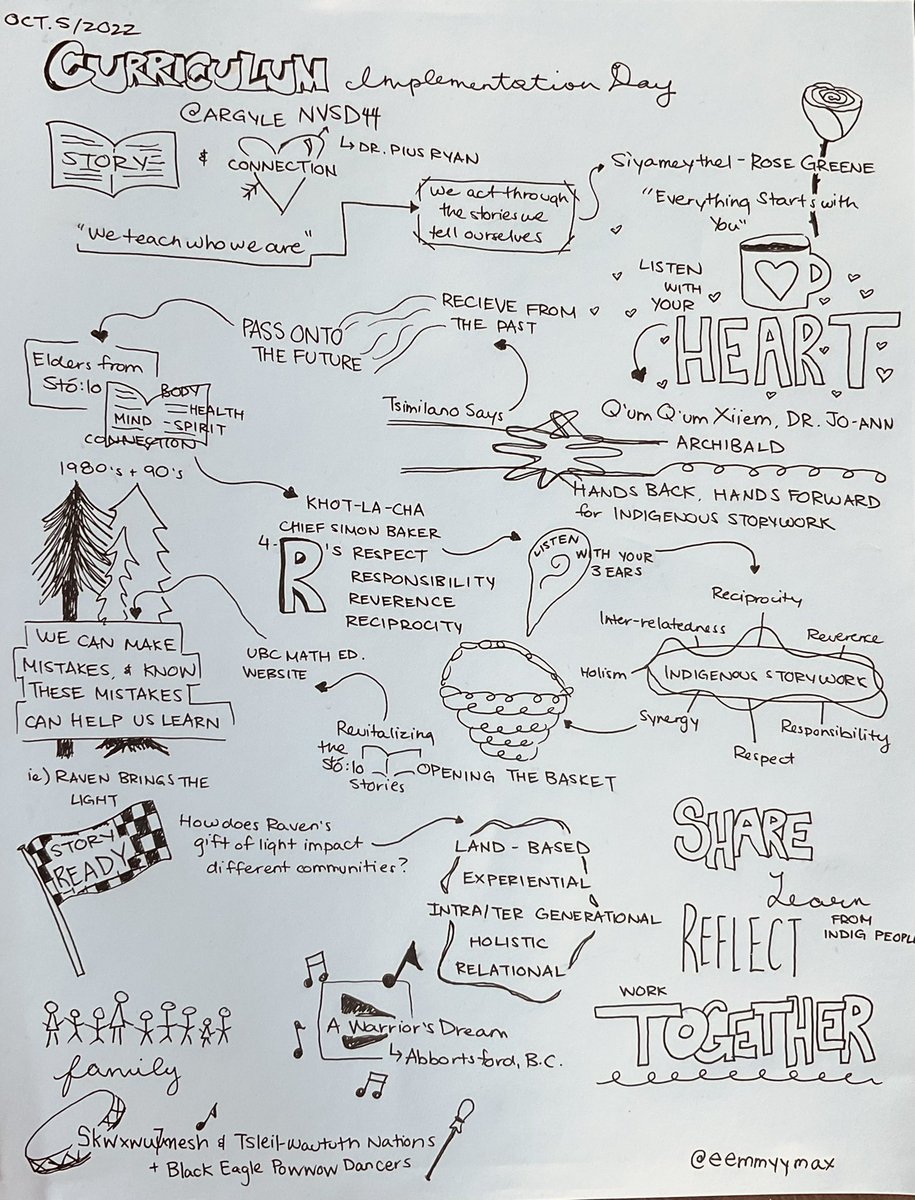 OCT. 5/2022
CURRICULUM Implementation Day
@ARGYLE NVSD44
STORY & CONNECTION
↳ DR. PIUS RYAN
"We teach who we are"
we act through
the stories we
tell ourselves
Siyameythel - ROSE GREENE
"Everything Starts with
You"
LISTEN
WITH
YOUR
HEART
RECIEVE FROM
THE PAST
PASS ONTO
THE FUTURE
Elders from
Stó:lo
BODY
MIND
HEALTH
SPIRIT
CONNECTION
1980's + 90's
Tsimilano Says
Q'um Q'um Xiiem, DR. JO-ANN
ARCHIBALD
HANDS BACK, HANDS FORWARD
for INDIGENOUS STORYWORK
KHOT-LA-CHA
CHIEF SIMON BAKER
4-R's RESPECT
RESPONSIBILITY
REVERENCE
RECIPROCITY
LISTEN WITH YOUR
3 EARS
Reciprocity
Inter-relatedness
Reverence
Holism
INDIGENOUS STORYWORK
Synergy
Responsibility
Respect
WE CAN MAKE
MISTAKES, & KNOW
THESE MISTAKES
CAN HELP US LEARN
UBC MATH ED.
WEBSITE
Revitalizing
the
Stó:lo
stories
OPENING THE BASKET
ie) RAVEN BRINGS THE
LIGHT
STORY
READY
How does Raven's
gift of light impact
different communities?
LAND-BASED
EXPERIENTIAL
INTRA/TER GENERATIONAL
HOLISTIC
RELATIONAL
SHARE
Learn
FROM
INDIG PEOPL
REFLECT
WORK
TOGETHER
family
A Warrior's Dream
↳ Abbortsford, B.C.
Skwxwu7mesh & Tsleil-Waututh Nations
+ Black Eagle Powwow Dancers
@eemmyymax